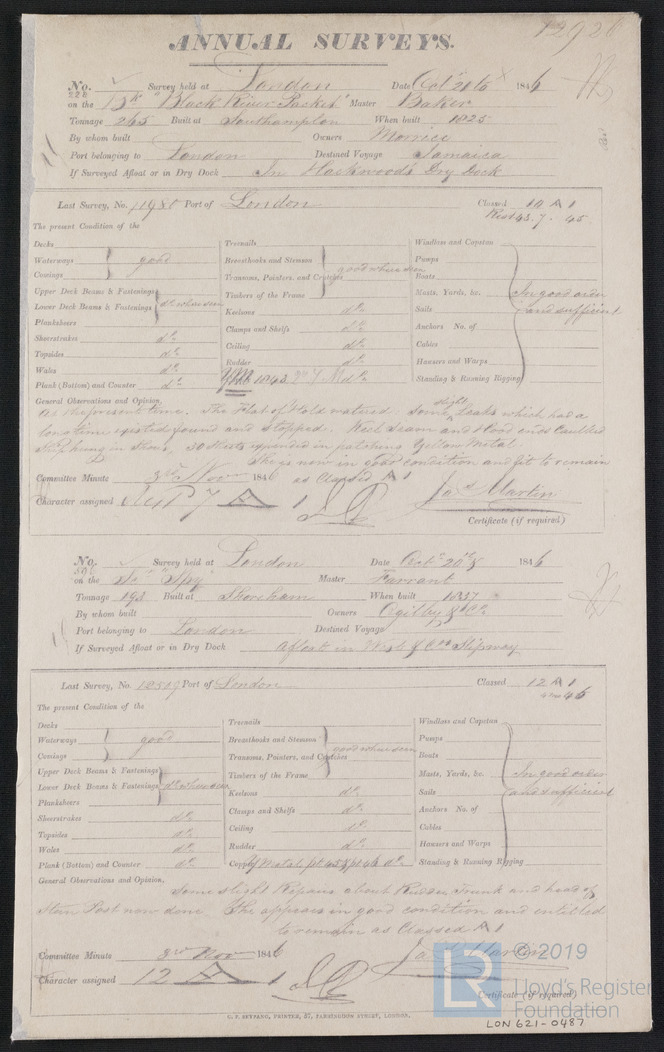 12920
ANNUAL SURVEYS.
No. 228 Survey held at London Date Oct 20 1846
on the Bk "Black River Packet" Master Baker
Tonnage 265 Built at Southampton When built 1825
By whom built Owners Morrice
Port belonging to London Destined Voyage Jamaica
If Surveyed Afloat or in Dry Dock In Dry Dock
Last Survey, No. 11980 Port of London Classed 10 A 1
43.7.45
The present Condition of the
Decks
Waterways good
Comings
Upper Deck Beams & Fastenings
Lower Deck Beams & Fastenings do where seen
Planksheers
Sheerstrakes do
Topsides do
Wales do
Plank (Bottom) and Counter do
Treenails
Breasthooks and Stemson good where seen
Transoms, Pointers, and Crutches
Timbers of the Frame
Keelsons do
Clamps and Shelfs do
Ceiling do
Rudder do
YM 1843
Windlass and Capstan
Pumps
Boats
Masts, Yards, &c. In good order
Sails and sufficient
Anchors No. of
Cables
Hawsers and Warps
Standing & Running Rigging
General Observations and Opinion,
At the present time. The Flat of Hold watered, some slight Leaks which had a
long time existed found and stopped. Keel Seam and Hood ends Caulked
30 Sheets expended in patching Yellow Metal.
She is now in good condition and fit to remain
Committee Minute 3rd Nov 1846 as Classed A 1
Character assigned A 1 Jas Martin
Certificate (if required)
No. Survey held at London Date Oct 20 1846
on the Sr "Spy" Master Farrant
Tonnage 193 Built at Shoreham When built 1837
By whom built Owners Ogilby & Co
Port belonging to London Destined Voyage
If Surveyed Afloat or in Dry Dock Afloat in & Cos Slipway
Last Survey, No. Port of London Classed 12 A 1
46
The present Condition of the
Decks
Waterways good
Comings
Upper Deck Beams & Fastenings
Lower Deck Beams & Fastenings do where seen
Planksheers
Sheerstrakes do
Topsides do
Wales do
Plank (Bottom) and Counter do
Treenails
Breasthooks and Stemson good where seen
Transoms, Pointers, and Crutches
Timbers of the Frame
Keelsons do
Clamps and Shelfs do
Ceiling do
Rudder do
Copper Y Metal pt 45 & pt 46 do
Windlass and Capstan
Pumps
Boats
Masts, Yards, &c. In good order
Sails and sufficient
Anchors No. of
Cables
Hawsers and Warps
Standing & Running Rigging
General Observations and Opinion,
Some slight Repairs about Rudder Trunk and head of
Stern Post now done. She appears in good condition and entitled
to remain as Classed A 1
Committee Minute 3rd Nov 1846 Jas Martin
Character assigned 12 A 1
Certificate (if required)
C. F. SEYFANG, PRINTER, 57, FARRINGDON STREET, LONDON.
LR © 2019
Lloyd's Register
Foundation
LON 621-0487